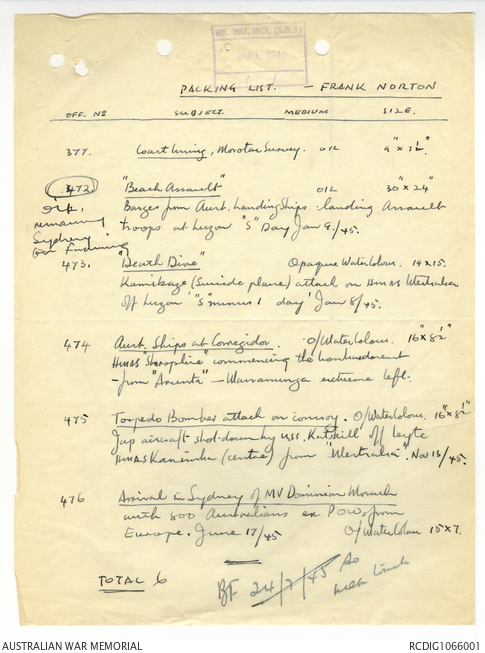 MIL. HIST. SECT. (S.D.7)
1945
PACKING LIST. — FRANK NORTON
OFF. No SUBJECT. MEDIUM SIZE.
377. Coastlining, Morotai Survey. OIL 9" x 7½".
472 "Beach Assault" OIL 30" x 24"
Barges from Aust. Landing Ships landing Assault
troops at Luzon "S" Day Jan 9./45.
remaining
Sydney
for finishing
473. "Death Dive" Opaque WaterColour. 19 x 15.
Kamikaze (Suicide plane) attack on HMAS Westralia
off Luzon 'S' minus 1 day' Jan 8/45.
474 Aust. Ships at Corregidor. O/WaterColour. 16" x 8½"
HMAS "Shropshire" commencing the bombardment
- from "Arunta" - Warramunga extreme left.
475 Torpedo Bomber attack on convoy. O/WaterColour. 16" x 8½"
Jap aircraft shot down by USS. Katskill off Leyte
HMAS Kanimbla (centre) from "Westralia". Nov 13/45.
476 Arrival in Sydney of MV Dominion Monarch
with 800 Australians ex POWs from
Europe. June 17/45 O/WaterColour 15 x 7.
TOTAL 6
BF 24/7/45